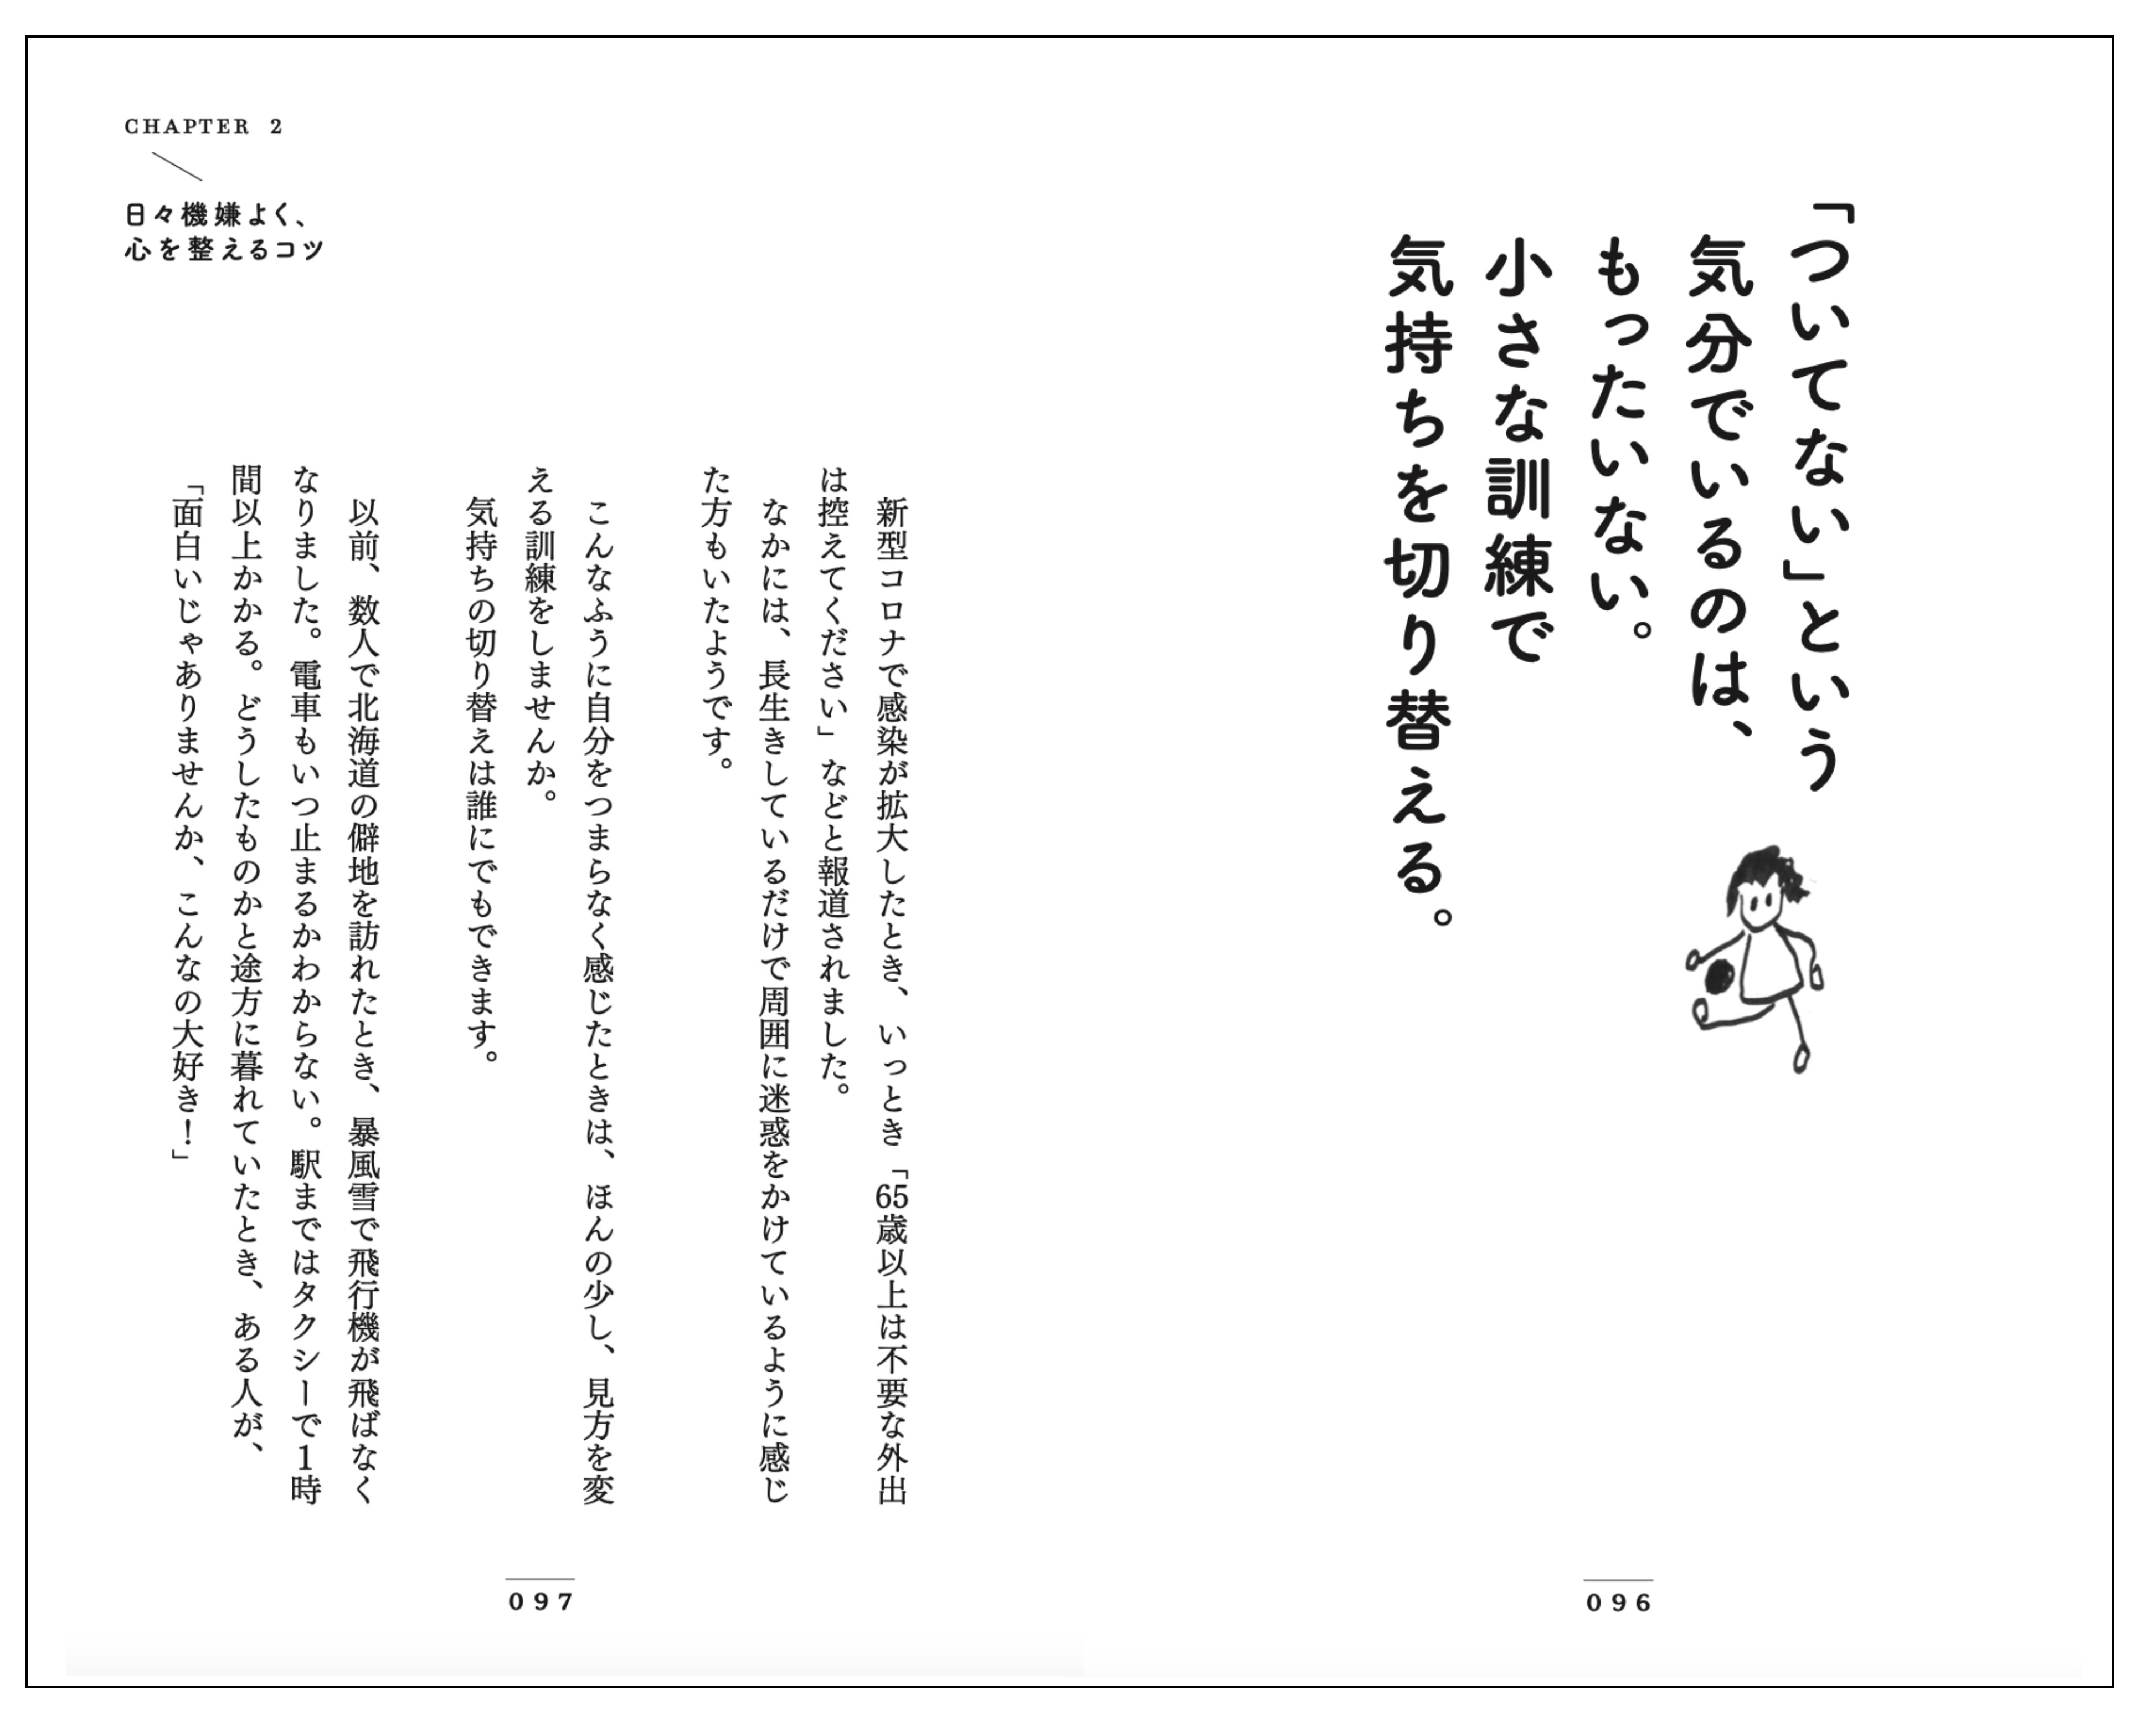 「ついてない」という
気分でいるのは、
もったいない。
小さな訓練で
気持ちを切り替える。
096
CHAPTER 2
日々機嫌よく、
心を整えるコツ
新型コロナで感染が拡大したとき、いっとき「65歳以上は不要な外出
は控えてください」などと報道されました。
なかには、長生きしているだけで周囲に迷惑をかけているように感じ
た方もいたようです。
こんなふうに自分をつまらなく感じたときは、ほんの少し、見方を変
える訓練をしませんか。
気持ちの切り替えは誰にでもできます。
以前、数人で北海道の僻地を訪れたとき、暴風雪で飛行機が飛ばなく
なりました。電車もいつ止まるかわからない。駅まではタクシーで1時
間以上かかる。どうしたものかと途方に暮れていたとき、ある人が、
「面白いじゃありませんか、こんなの大好き！」
097